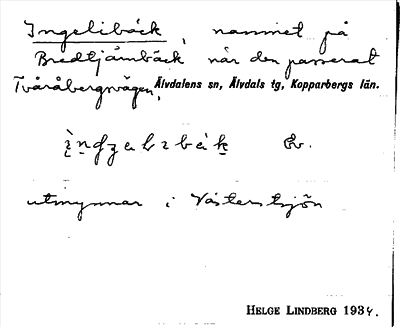 Ingelibäck, namnet på
Bredtjämbäck när den passerat
Tvåråbergsvägen, Älvdalens sn, Älvdals tg, Kopparbergs län.
utmynnar i Västertsjön
HELGE LINDBERG 1934.